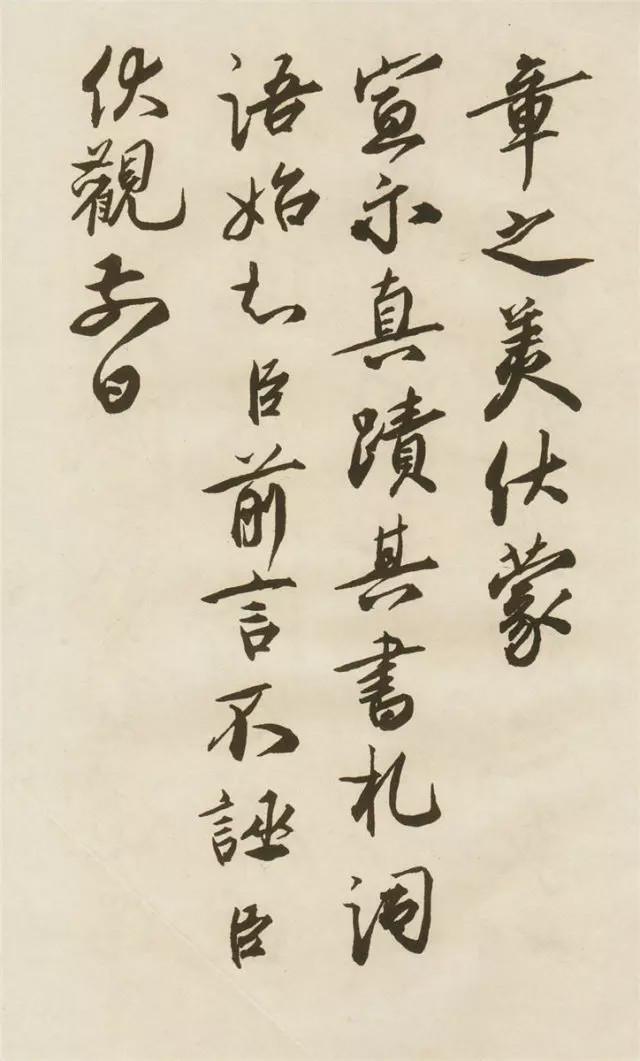 章之美伏蒙
宣示真蹟其書札詞
語始知臣前言不誣臣
伏觀日